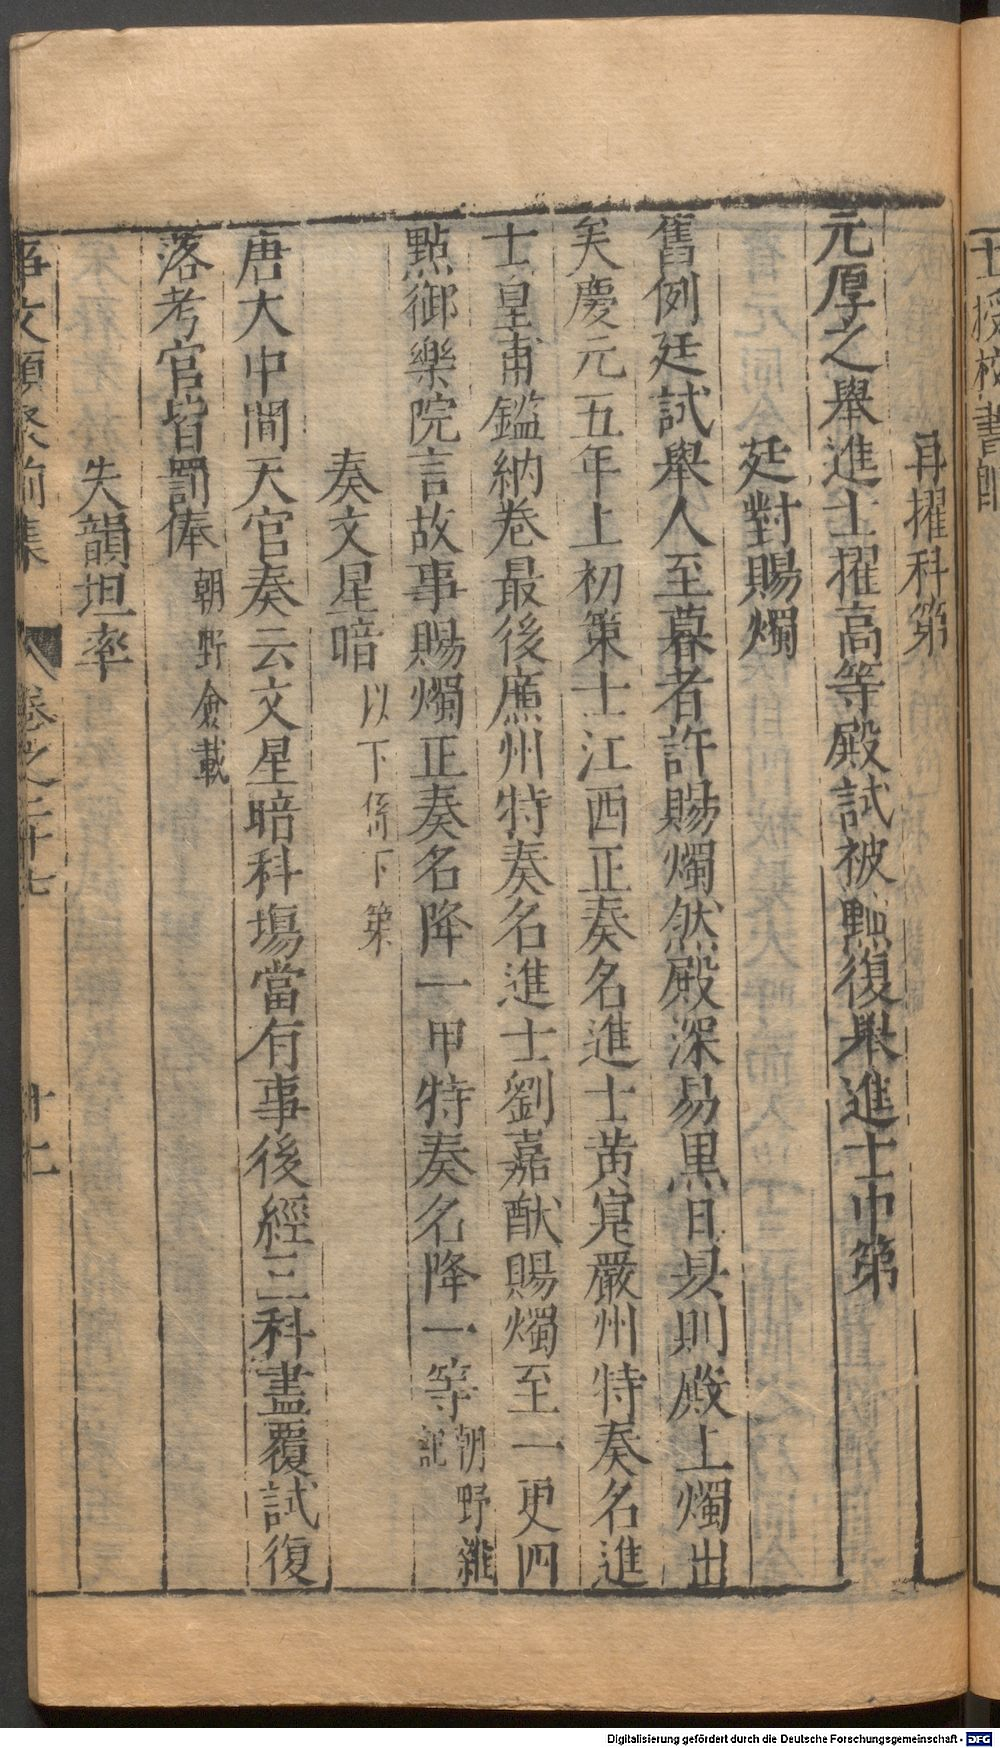 士授校書郎
再擢科第
元厚之舉進士擢高等殿試被黜復舉進士中第
廷對賜燭
舊例廷試舉人至暮者許賜燭然殿深易黑日昃則殿上燭出
矣慶元五年上初策士江西正奏名進士黄寔嚴州特奏名進
士皇甫鑑納卷最後廉州特奏名進士劉嘉猷賜燭至一更四
點御樂院言故事賜燭正奏名降一甲特奏名降一等朝野雜
記
奏文星暗以下係下第
唐大中間天官奏云文星暗科場當有事後經三科盡覆試復
落考官皆罰俸朝野僉載
失韻坦率
事文類聚前集 卷之二十七 十二
Digitalisierung gefördert durch die Deutsche Forschungsgemeinschaft - DFG